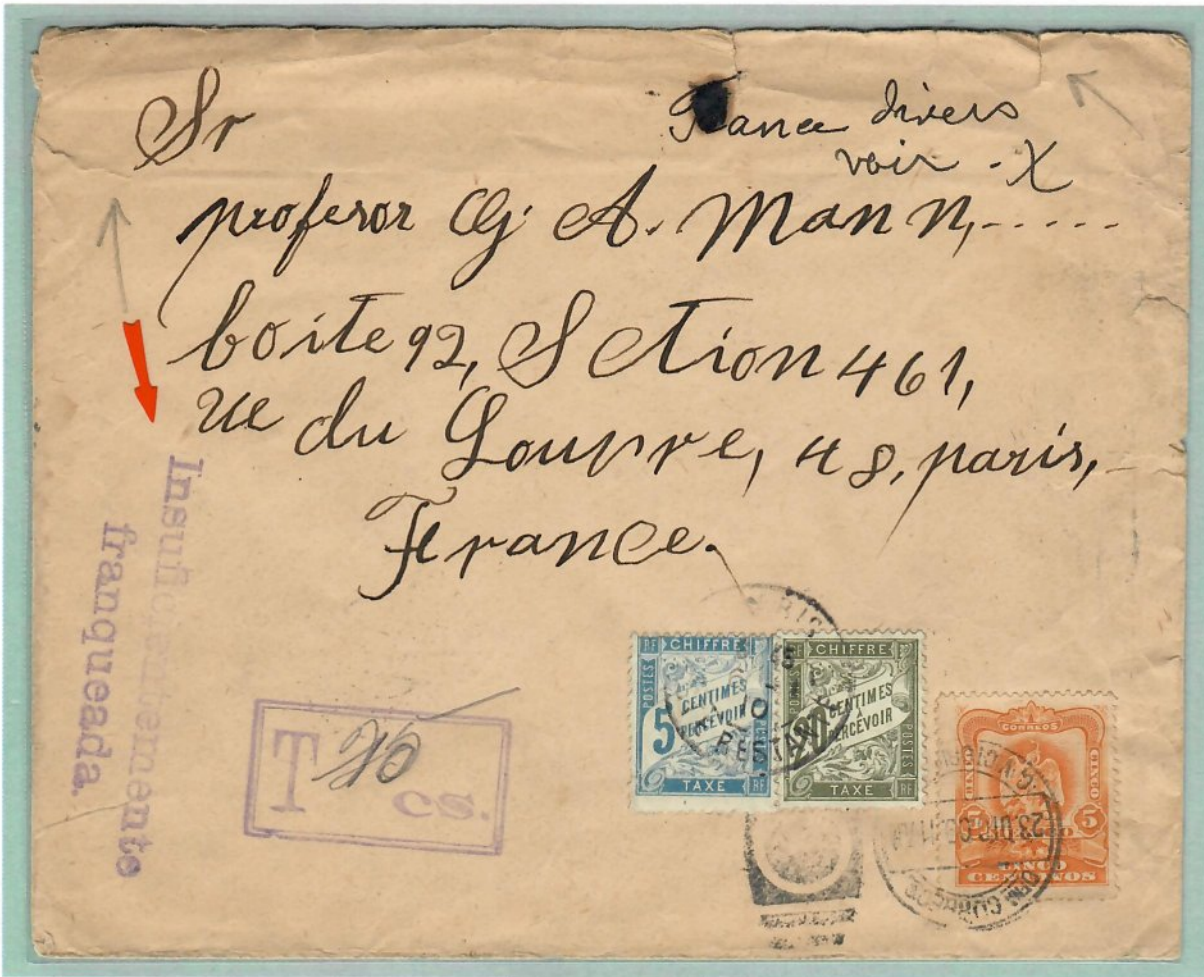 Sr
France divers
voir - X
profesor G. A. Mann,.....
boite 92, Sction 461,
rue du Louvre, 48, paris,
France.
Insuficientemente
franqueada.
T
cs.
RF CHIFFRE RF
POSTES
5 CENTIMES
À
PERCEVOIR
TAXE RF
RF CHIFFRE RF
20 CENTIMES
À
PERCEVOIR
POSTES
TAXE RF
RESTANTE
CORREOS
CINCO
5 5
CINCO
CENTAVOS
23 DIC